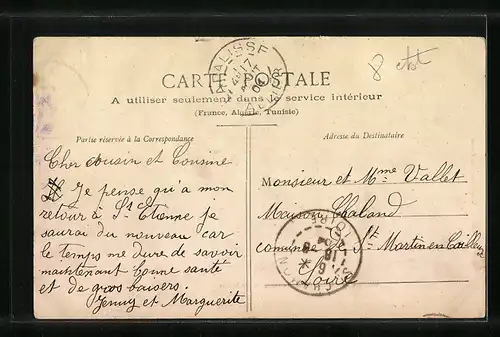 8
CARTE POSTALE
A utiliser seulement dans le service intérieur
(France, Algérie, Tunisie)
Partie réservée à la Correspondance
Adresse du Destinataire
Cher Cousin et Cousine
Je pense qu'a mon
retour à St Etienne je
saurai du nouveau car
le temps me dure de savoir
maintenant bonne santé
et de gros baisers.
Jenny et Marguerite
Monsieur et Mme Vallet
Maison Chaland
comune St Martin en
Loire